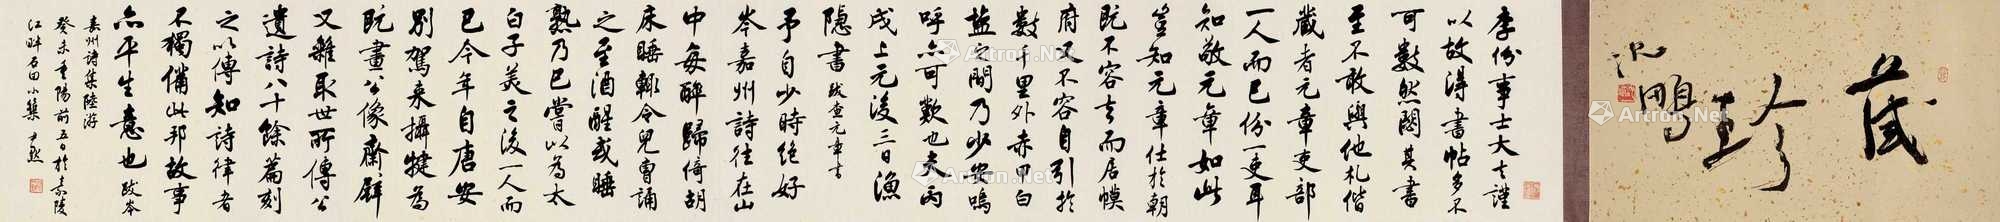 藏珍
沈鵬
李份事士大夫謹
以故得書帖多不
可數然閟其書
至不敢與他札偕
藏者元章吏部
一人而已份一吏耳
知敬元章如此
豈知元章仕於朝
既不容去而居幙
府又不容自引於
數千里外赤甲白
鹽之間乃少安嗚
呼亦可歎也夫丙
戌上元後三日漁
隱書 跋查元章書
予自少時絕好
岑嘉州詩往在山
中每醉歸倚胡
床睡輒令兒曹誦
之至酒醒或睡
熟乃已嘗以為太
白子美之後一人而
已今年自唐安
別駕來攝犍為
既畫公像齋壁
又雜取世所傳公
遺詩八十餘篇刻
之以傳知詩律者
不獨備此邦故事
亦平生意也 跋岑
嘉州詩集陸游
癸未重陽前五日於嘉陵
江畔石田小築 尹默
Artron.Net
Artron.Net
Artron.Net
Artron.Net
Artron.Net
Artron.Net